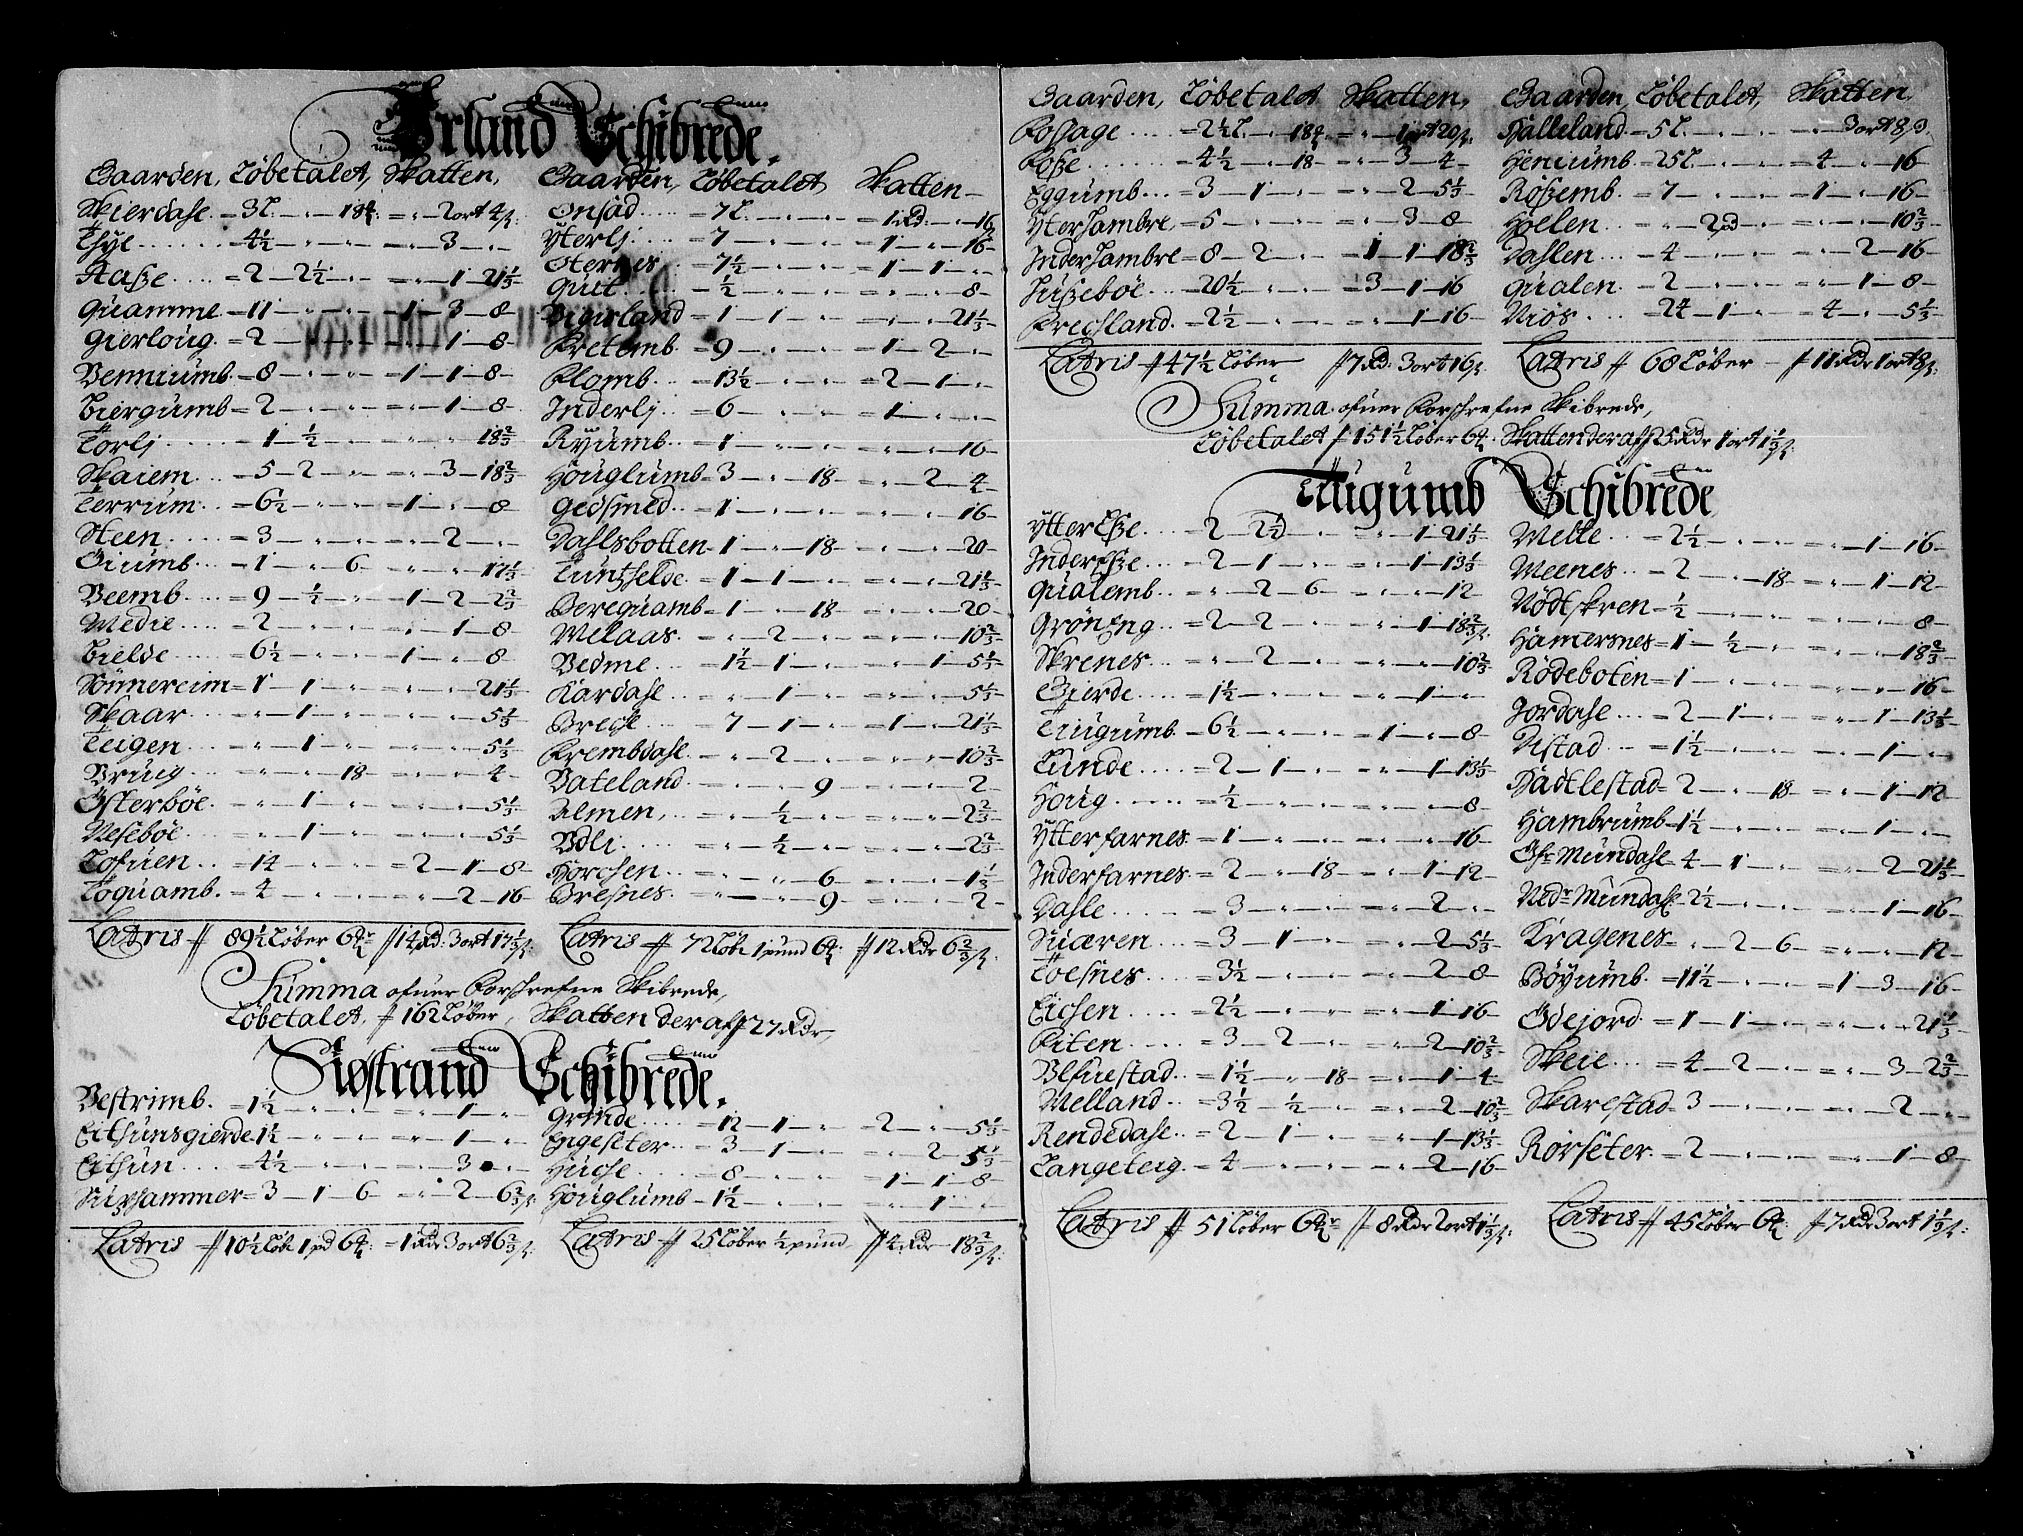 Urland Schibrede.
Gaarden, Löbetalet, Skatten,
Skierdahl = 3 L. - „ - 18 ℔: = „ - 2 ort 4 ß.
Thye = 4½ - „ - „ = „ - 3 - „
Aaße = 2 - 2½ - „ = „ - 1 - 21⅓
Quamme = 11 - „ - „ = 1 - 3 - 8
Gierloug = 2 - „ - „ = „ - 1 - 8
Venniumb = 8 - „ - „ = 1 - 1 - 8
Biergumb = 2 - „ - „ = „ - 1 - 8
Torlj = 1 - ½ - „ = „ - „ - 18⅔
Skaiem = 5 - 2 - „ = „ - 3 - 18⅔
Terrum = 6½ - „ - „ = 1 - „ - 8
Steen = 3 - „ - „ = „ - 2 - „
Oiumb = 1 - „ - 6 = „ - „ - 17⅓
Veemb = 9 - ½ - „ = 1 - 2 - 2⅔
Medie = 2 - „ - „ = „ - 1 - 8
Bielde = 6½ - „ - „ = 1 - „ - 8
Sönnereim = 1 - 1 - „ = „ - „ - 21⅓
Skaar = „ - 1 - „ = „ - „ - 5⅓
Teigen = „ - 1 - „ = „ - „ - 5⅓
Brüng = „ - „ - 18 = „ - „ - 4
Österböe = „ - 1 - „ = „ - „ - 5⅓
Neseböe = „ - 1 - „ = „ - „ - 5⅓
Tofuen = 14 - „ - „ = 2 - 1 - 8
Toquamb = 4 - „ - „ = „ - 2 - 16
Latris // 89½ Löber 6 ℔r // 14 Rd: 3 ort 17⅓ ß:
Gaarden, Löbetalet Skatten
Onsad = 7 L. - „ - „ = 1 Rd. - „ - 16 ß
Ÿterlj = 7 - „ - „ = 1 - „ - 16
Oternes = 7½ - „ - „ = 1 - 1 - „
Quit = ½ - „ - „ = „ - „ - 8
Vigisland = 1 - 1 - „ = „ - „ - 21⅓
Fretemb = 9 - „ - „ = 1 - 2 - „
Flomb = 13½ - „ - „ = 2 - 1 - „
Inderlj = 6 - „ - „ = 1 - „ - „
Ryumb = 1 - „ - „ = „ - „ - 16
Houglumb = 3 - „ - 18 = „ - 2 - 4
Gedsmed = 1 - „ - „ = „ - „ - 16
Dahlsbotten = 1 - „ - 18 = „ - „ - 20
Tuntzhelde = 1 - 1 - „ = „ - „ - 21⅓
Berequamb = 1 - „ - 18 = „ - „ - 20
Melaas = „ - 2 - „ = „ - „ - 10⅔
Vedme = 1½ - 1 - „ = „ - 1 - 5⅓
Kardahl = „ - 1 - „ = „ - „ - 5⅓
Breche = 7 - 1 - „ = 1 - „ - 21⅓
Frembdahl = „ - 2 - „ = „ - „ - 10⅔
Vateland = „ - „ - 9 = „ - „ - 2
Almen = „ - ½ - „ = „ - „ - 2⅔
Vdli = „ - ½ - „ = „ - „ - 2⅔
Horchen = „ - „ - 6 = „ - „ - 1⅓
Bresnes = „ - „ - 9 = „ - „ - 2
Latris // 72 Löb: 1 pund 6 ℔: // 12 Rdr 6⅔ ß:
Summa ofuer Forschrefne Skibrede,
Löbetalet, // 162 Löber, Skatten der af // 27 Rdr,
Siøstrand Schibrede.
Vestrimb = 1½ - „ - „ = „ - 1 - „
Eithunsgierde = 1½ - „ - „ = „ - 1 - „
Eithun = 4½ - „ - „ = „ - 3 - „
Nuzhammer = 3 - 1 - 6 = „ - 2 - 6⅔ ß:
Latris // 10½ Löb: 1 pd 6 ℔: = 1 Rdr 3 ort 6⅔ ß:
Grinde = 12 - 1 - „ = 2 - „ - 5⅓
Engeseter = 3 - 1 - „ = „ - 2 - 5⅓
Huche = 8 - „ - „ = 1 - 1 - 8
Houglumb = 1½ - „ - „ = „ - 1 - „
Latris // 25 Löber ½ pund // 4 Rdr 18⅔ ß:
Gaarden, Löbetalet Skatten,
Foßage = 2½ L. - „ - 18 ℔ = „ - 1 ort 20 ß:
Foße = 4½ - „ - 18 = „ - 3 - 4
Eggumb = 3 - 1 - „ = „ - 2 - 5⅓
Ytterhambre = 5 - „ - „ = „ - 3 - 8
Inderhambre = 8 - 2 - „ = 1 - 1 - 18⅔
Hußeböe = 20½ - „ - „ = 3 - 1 - 16
Frechland = 2½ - „ - „ = „ - 1 - 16
Latris // 47½ Löber // 7 Rd. 3 ort 16 ß:
Gaarden, Löbetalet, Skatten,
Halleland = 5 L. - „ - „ = „ - 3 ort 8 ß
Heniumb = 25 L - „ - „ = 4 - „ - 16
Rößemb = 7 - „ - „ = 1 - „ - 16
Höllen = „ - 2 pd - „ = „ - „ - 10⅔
Dahlen = 4 - „ - „ = „ - 2 - 16
Qualen = 2 - „ - „ = „ - 1 - 8
Niös = 24 - 1 - „ = 4 - „ - 5⅓
Latris // 68 Löber // 11 Rdr 1 ort 8 ß:
Summa ofuer Forschrefne Skibrede,
Löbetalet // 151½ Löber 6 ℔: Skatten der af // 25 Rdr 1 ort 1⅓ ß:
Tiugumb Schibrede
Ytter Eße = 2 - 2½ - „ = „ - 1 - 21⅓
Inder Eße = 2 - 1 - „ = „ - 1 - 13⅓
Qualemb = „ - 2 - 6 = „ - „ - 12
Gröneng = 2 - 2 - „ = „ - 1 - 18⅔ ß:
Skrenes = „ - 2 - „ = „ - „ - 10⅔
Gierde = 1½ - „ - „ = „ - 1 - „
Tiugumb = 6½ - „ - „ = 1 - „ - 8
Lunde = 2 - 1 - „ = „ - 1 - 13⅓
Houg = ½ - „ - „ = „ - „ - 8
Ytterfarnes = 1 - „ - „ = „ - „ - 16
Inderfarnes = 2 - „ - 18 = „ - 1 - 12
Dahle = 3 - „ - „ = „ - 2 - „
Suæren = 3 - 1 - „ = „ - 2 - 5⅓
Toesnes = 3½ - „ - „ = „ - 2 - 8
Eichen = 2½ - „ - „ = „ - 1 - 16
Fiten = 3 - 2 - „ = „ - 2 - 10⅔
Vlfuestad = 1½ - „ - 18 = „ - 1 - 4
Melland = 3½ - ½ - „ = „ - 2 - 10⅔
Rendedahl = 2 - 1 - „ = „ - 1 - 13⅓
Langeteig = 4 - „ - „ = „ - 2 - 16
Latris // 51 Löber 6 ℔r // 8 Rdr 2 ort 1⅓ ß:
Melle = 2½ - „ - „ = „ - 1 - 16
Meenes = 2 - „ - 18 = „ - 1 - 12
Nödtskren = ½ - „ - „ = „ - „ - 8
Hamersnes = 1 - ½ - „ = „ - „ - 18⅔
Rödeboten = 1 - „ - „ = „ - „ - 16
Jordahl = 2 - 1 - „ = „ - 1 - 13⅓
Distad = 1½ - „ - „ = „ - 1 - „
Hadtlestad = 2 - „ - 18 = „ - 1 - 12
Hambrumb = 1½ - „ - „ = „ - 1 - „
Ofr Mundahl = 4 - 1 - „ = „ - 2 - 21⅓
Nedr Mundahl = 2½ - „ - „ = „ - 1 - 16
Kragenes = „ - 2 - 6 = „ - „ - 12
Böyumb = 11½ - „ - „ = 1 - 3 - 16
Ödejord = 1 - 1 - „ = „ - „ - 21⅓
Skeie = 4 - 2 - „ = „ - 3 - 2⅔
Skarestad = 3 - „ - „ = „ - 2 - „
Rorseter = 2 - „ - „ = „ - 1 - 8
Latris // 45 Löber 6 ℔: // 7 Rdr 3 ort 1⅓ ß: